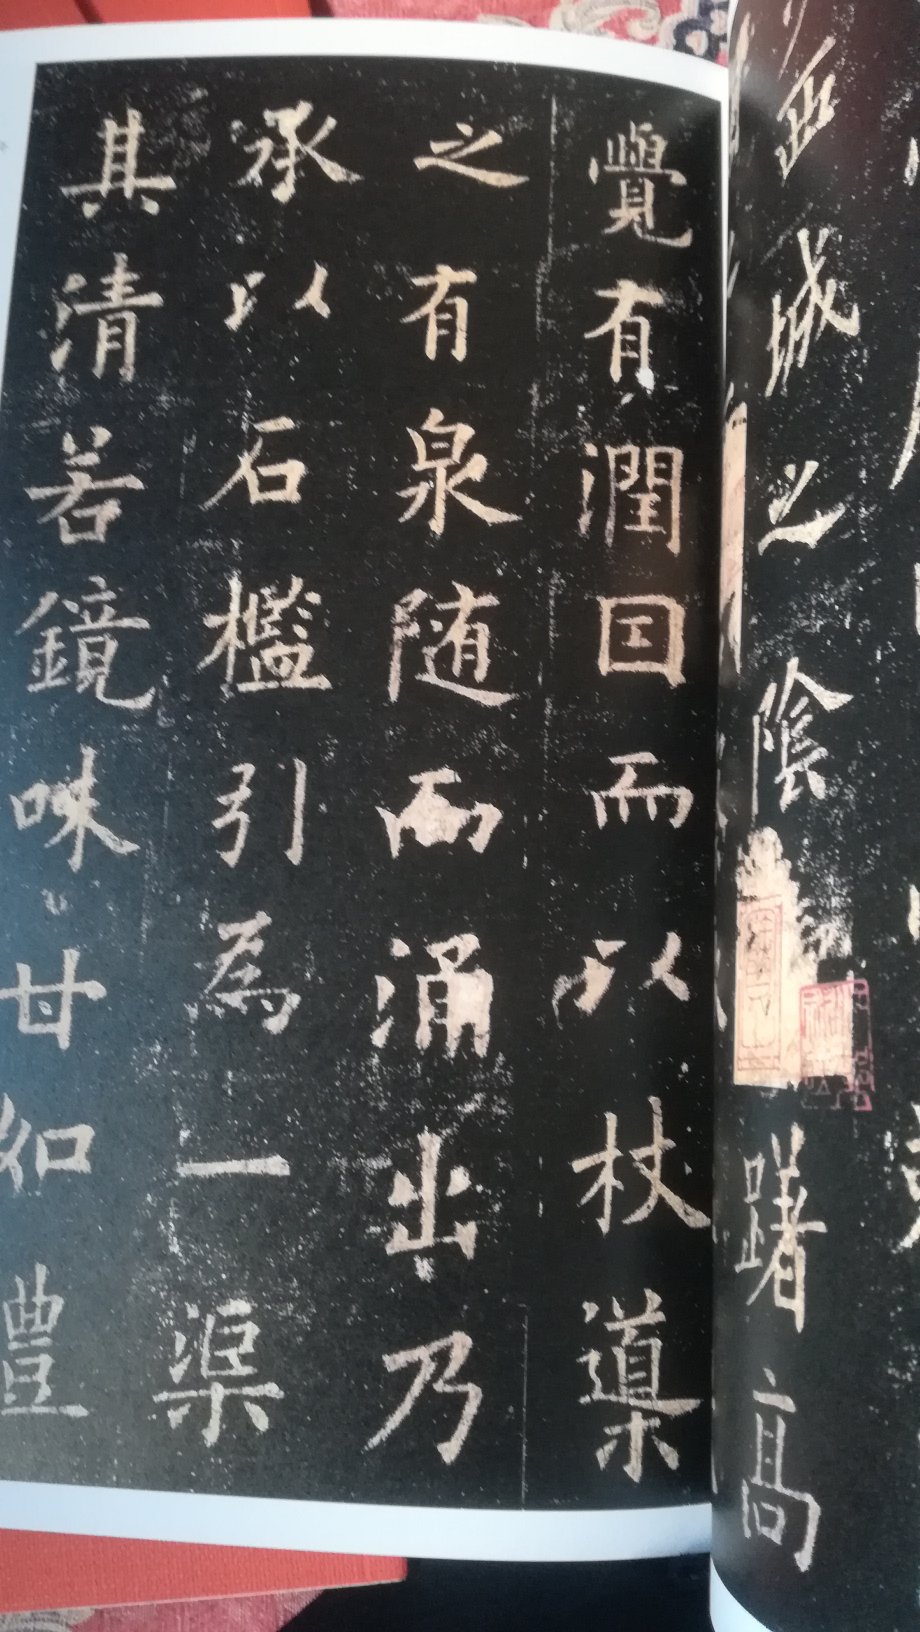 西城之陰
躇高
覺有潤囙而以杖導
之有泉随而涌出乃
承以石檻引為一渠
其清若鏡味甘如